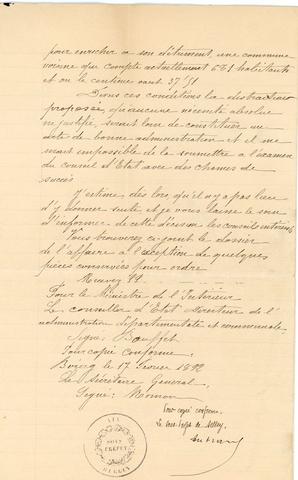 pour enrichir à son détriment, une commune
voisine qui compte actuellement 681 habitants
et où le centime vaut 37f51
Dans ces conditions la distraction
proposée, qu'aucune nécessité absolue
ne justifie, serait loin de constituer un
acte de bonne administration et il me
serait impossible de la soumettre à l'examen
du conseil d'Etat avec des chances de
succès
J'estime dès lors qu'il n'y a pas lieu
d'y donner suite et je vous laisse le soin
d'informer de cette décision les conseils
Vous trouverez ci-joint le dossier
de l'affaire à l'exception de quelques
pièces conservées pour ordre
Recevez
Pour le Ministre de l'Intérieur
Le conseiller d'Etat Directeur de l'
administration départementale et communale
Signé:
Pour copie conforme
17 Février 1892
Le Secrétaire Général
Signé:
Pour copie conforme
Le Sous-Préfet de
SOUS
PREFET